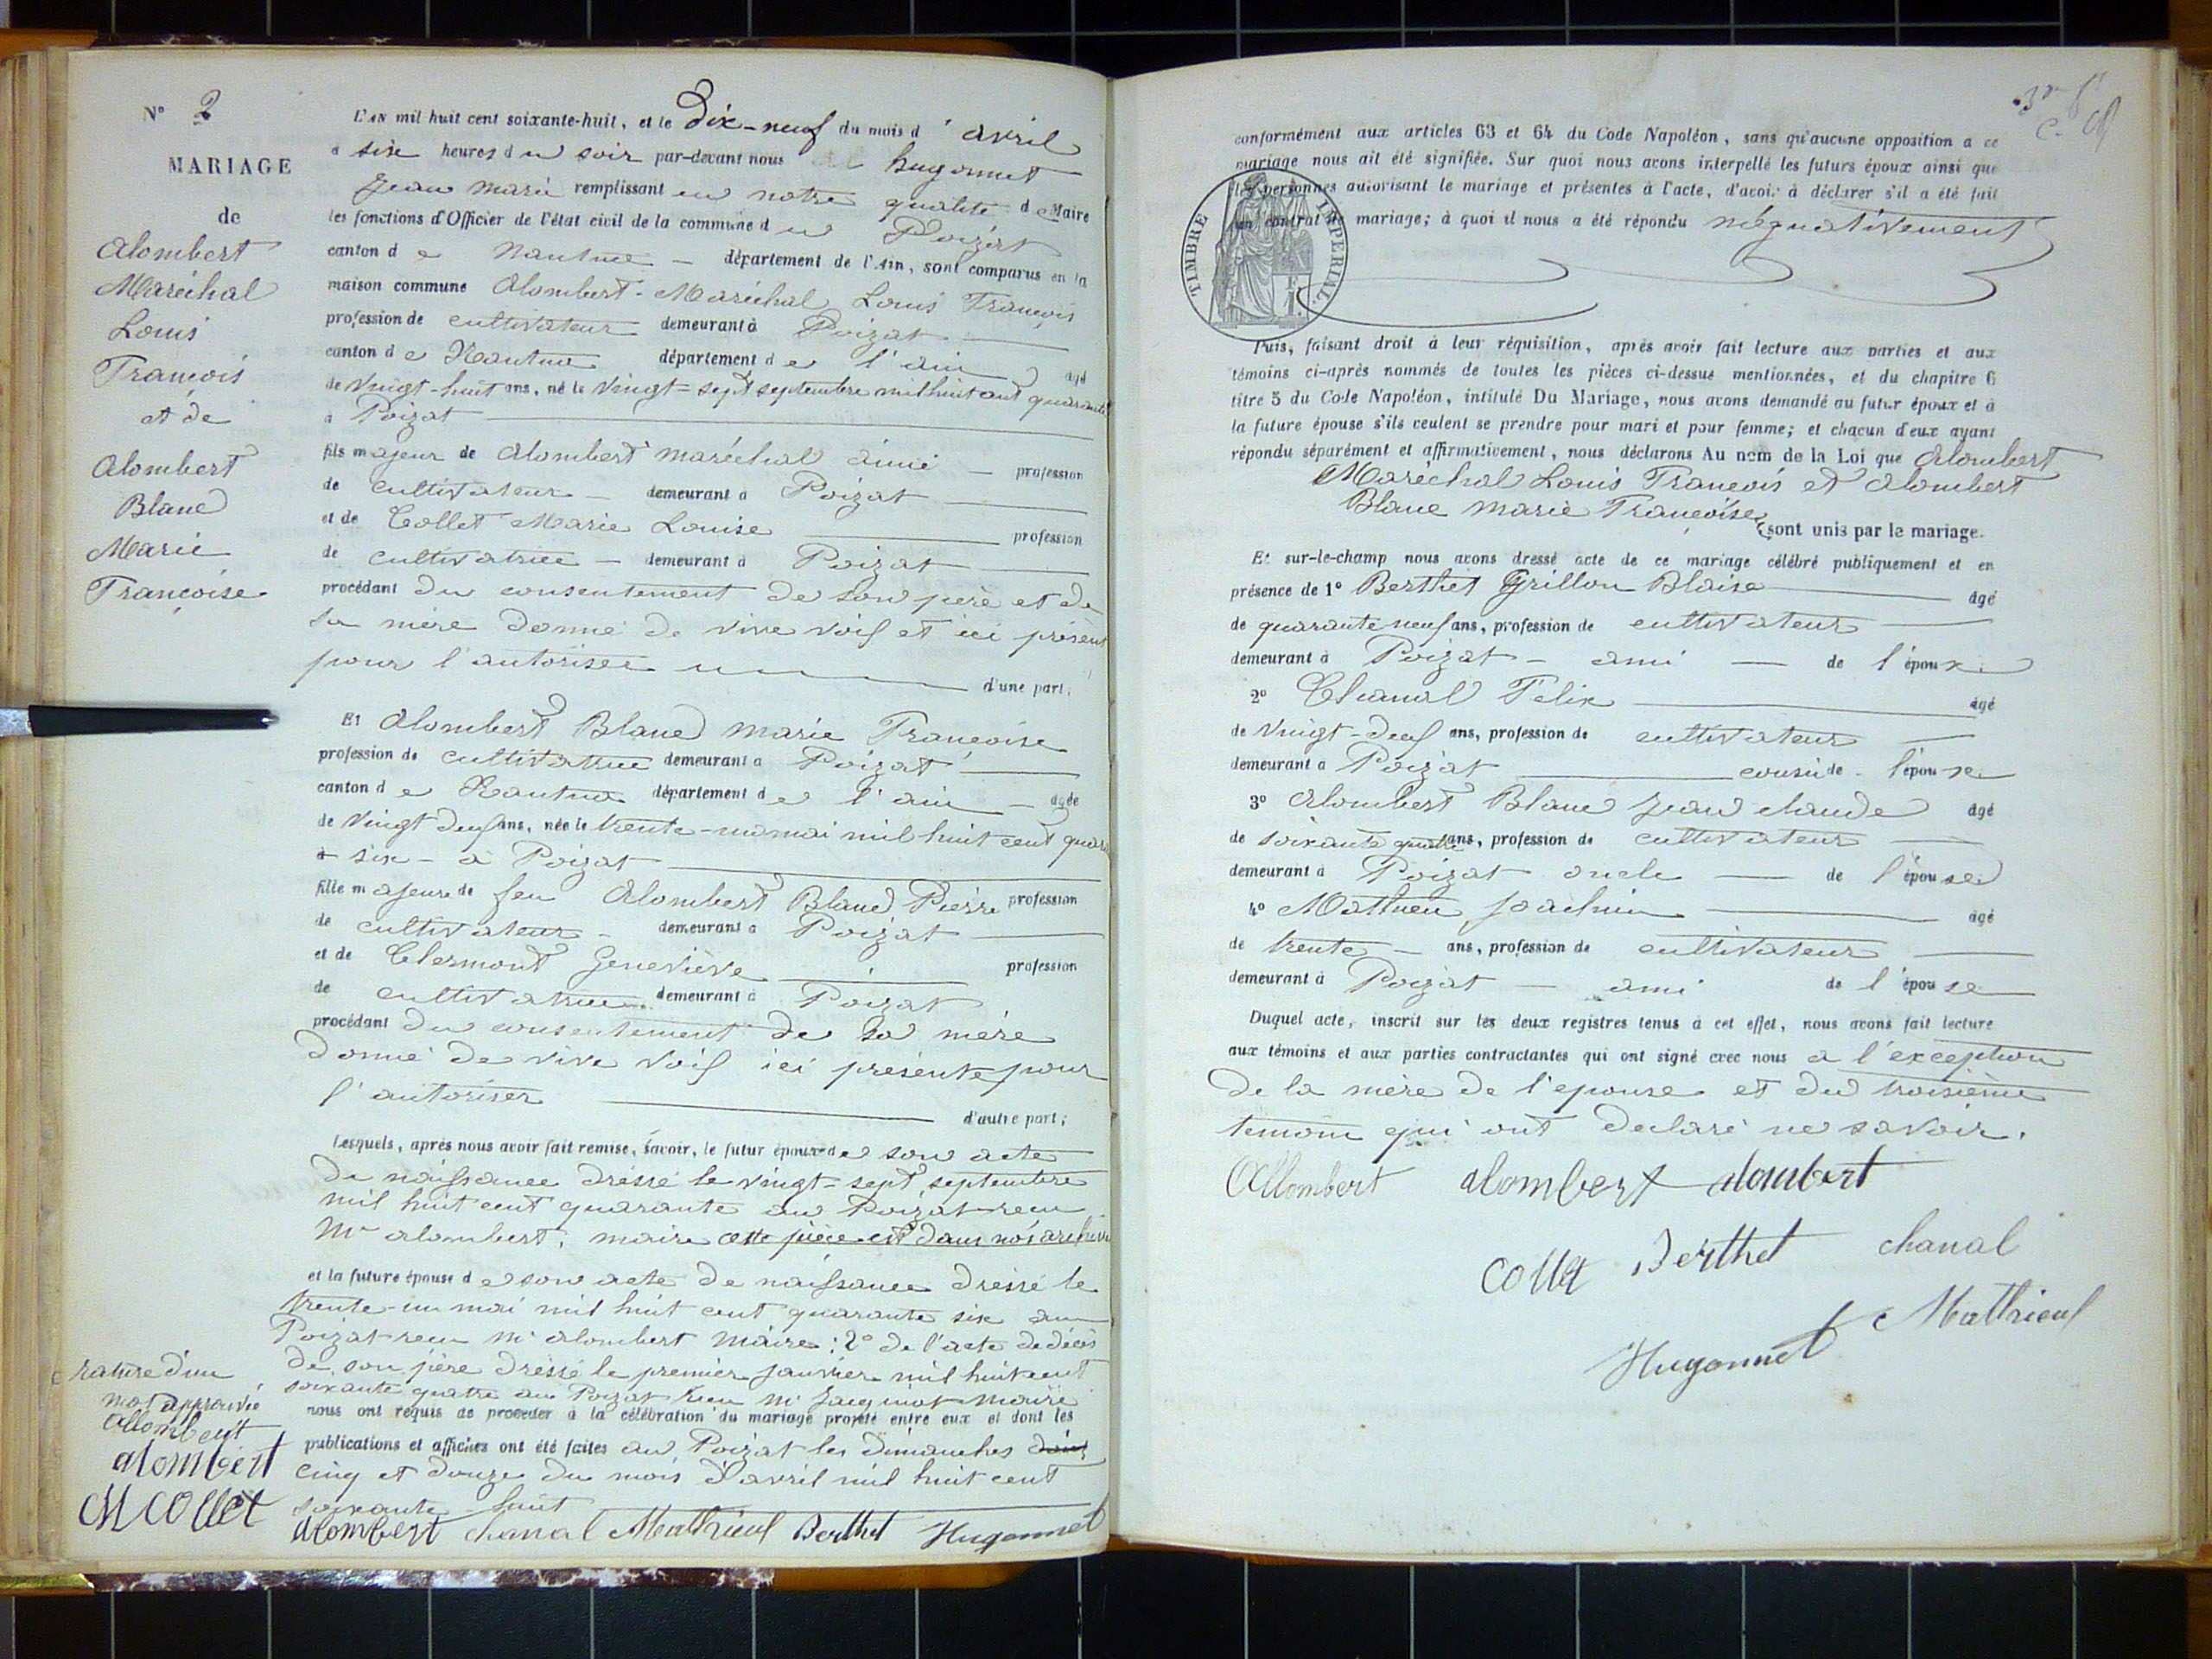 N° 2
MARIAGE
de
Alombert
Maréchal
Louis
François
et de
Alombert
Blanc
Marie
Françoise
L'AN mil huit cent soixante-huit, et le Dix-neuf du mois d'avril
à six heures du soir par-devant nous Hugonnet
Jean Marie remplissant en notre qualité de Maire
les fonctions d'Officier de l'état civil de la commune du Poizat
canton de Nantua — département de l'Ain, sont comparus en la
maison commune Alombert-Maréchal Louis François
profession de cultivateur demeurant à Poizat
canton de Nantua département de l'ain âgé
de Vingt-huit ans, né le Vingt-sept septembre mil huit cent quarante
à Poizat
fils majeur de Alombert maréchal aimé — profession
de cultivateur — demeurant à Poizat
et de Collet Marie Louise profession
de cultivatrice — demeurant à Poizat
procédant du consentement de son père et de
sa mère donné de vive voix et ici présent
pour l'autoriser d'une part;
Et Alombert Blanc Marie Françoise
profession de cultivatrice demeurant à Poizat
canton de Nantua département de l'ain — âgée
de Vingt deux ans, née le trente-un mai mil huit cent quara
six — à Poizat
fille majeure de feu Alombert Blanc Pierre profession
de cultivateur — demeurant à Poizat
et de Clermont Geneviève profession
de cultivatrice demeurant à Poizat
procédant du consentement de sa mère
donné de vive voix ici présente pour
l'autoriser d'autre part;
Lesquels, après nous avoir fait remise, savoir, le futur époux de son acte
de naissance dressé le vingt-sept septembre
mil huit cent quarante au Poizat recu
Mr alombert, maire cette pièce est dans nos archives
et la future épouse de son acte de naissance dressé le
trente-un mai mil huit cent quarante six au
Poizat recu Mr alombert Maire: 2° de l'acte de décès
de son père dressé le premier janvier mil huit cent
soixante quatre au Poizat recu Mr Jacquiot maire
nous ont requis de procéder à la célébration du mariage projeté entre eux et dont les
publications et affiches ont été faites au Poizat les dimanches
cinq et douze du mois d'avril mil huit cent
soixante-huit
rature d'un
mot approuvée
Allombert
alombert
M collet
alombert chanal Matthieux Berthet Hugonnet
conformément aux articles 63 et 64 du Code Napoléon, sans qu'aucune opposition a ce
mariage nous ait été signifiée. Sur quoi nous avons interpellé les futurs époux ainsi que
les personnes autorisant le mariage et présentes à l'acte, d'avoir à déclarer s'il a été fait
un contrat de mariage; à quoi il nous a été répondu néguativement
TIMBRE IMPERIAL
Puis, faisant droit à leur réquisition, après avoir fait lecture aux parties et aux
témoins ci-après nommés de toutes les pièces ci-dessus mentionnées, et du chapitre 6
titre 5 du Code Napoléon, intitulé Du Mariage, nous avons demandé au futur époux et à
la future épouse s'ils veulent se prendre pour mari et pour femme; et chacun d'eux ayant
répondu séparément et affirmativement, nous déclarons Au nom de la Loi que Alombert
Maréchal Louis François et Alombert
Blanc Marie Françoise sont unis par le mariage.
Et sur-le-champ nous avons dressé acte de ce mariage célébré publiquement et en
présence de 1° Berthet Grillon Blaise âgé
de quarante neuf ans, profession de cultivateur
demeurant à Poizat — ami — de l'époux
2° Chanal Félix âgé
de Vingt-deux ans, profession de cultivateur
demeurant à Poizat cousin de l'épouse
3° Alombert Blanc Jean claude âgé
de soixante quatre ans, profession de cultivateur
demeurant à Poizat oncle — de l'épouse
4° Matthieu Joachim âgé
de trente — ans, profession de cultivateur
demeurant à Poizat — ami de l'épouse
Duquel acte, inscrit sur les deux registres tenus à cet effet, nous avons fait lecture
aux témoins et aux parties contractantes qui ont signé avec nous a l'exception
de la mère de l'epouse et du troisième
temoin qui ont declaré ne savoir.
Allombert alombert alombert
collet Berthet chanal
Matthieux
Hugonnet